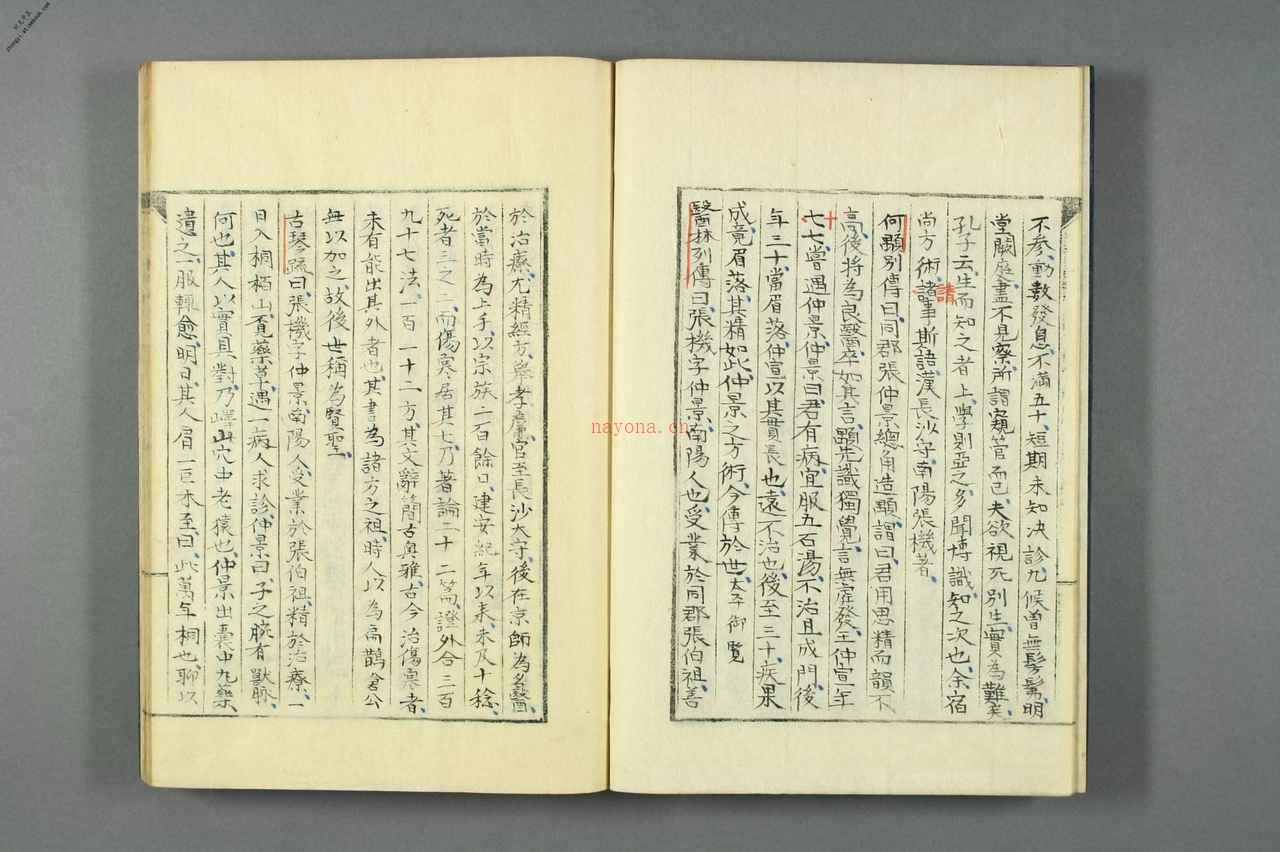 不参、動数發息、不滿五十、短期未知决診、九候曽無髣髴、明
堂闕庭、盡不見察、所謂窺管而已、夫欲視死別生、實為難矣、
孔子云、生而知之者上、學則亞之、多聞博識、知之次也、余宿
尚方術、請事斯語、漢長沙守南陽張機著、
請
何顒別傳曰、同郡張仲景、總角造顒、謂曰、君用思精而韻不
高、後将為良醫、卒如其言、顒先識獨覺、言無虚發、王仲宣年
十
七七、嘗遇仲景、仲景曰、君有病、宜服五石湯、不治且成門、後
年三十、當眉落、仲宣以其貫長也、遠不治也、後至三十、疾果
成、竟眉落、其精如此、仲景之方術、今傳於世、太平御覧
醫林列傳曰、張機字仲景、南陽人也、受業於同郡張伯祖、善
於治療、尤精經方、舉孝廉、官至長沙太守、後在京師為名醫、
於當時為上手、以宗族二百餘口、建安紀年以来、未及十稔、
死者三之二、而傷寒居其七、乃著論二十二篇、證外合三百
九十七法、一百一十二方、其文辭簡古奥雅、古今治傷寒者、
未有能出其外者也、其書為諸方之祖、時人以為扁鵲倉公
無以加之、故後世稱為賢聖、
古琴疏曰、張機字仲景、南陽人、受業於張伯祖、精於治療、一
日入桐栢山、覓藥草、遇一病人求診、仲景曰、子之腕有獸脈、
何也、其人以實具對、乃嶧山穴中老猿也、仲景出囊中九藥、
遺之、一服輙愈、明日、其人肩一巨木至、曰、此萬年桐也、聊以
nayona.cn